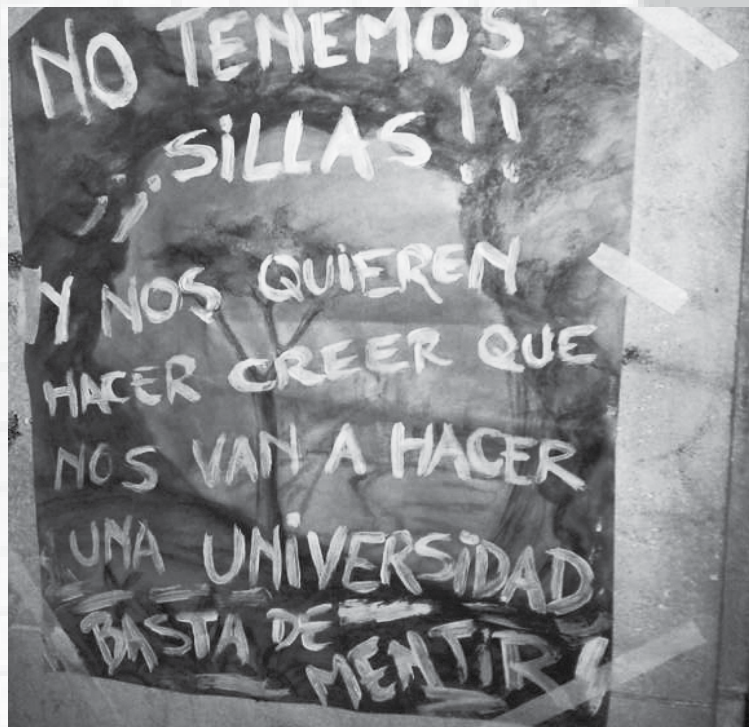 NO TENEMOS
¡¡¡SiLLAS!!
Y NOS QUiEREN
HACER CREER QUE
NOS VAN A HACER
UNA UNiVERSiDAD
BASTA DE
MENTiR!